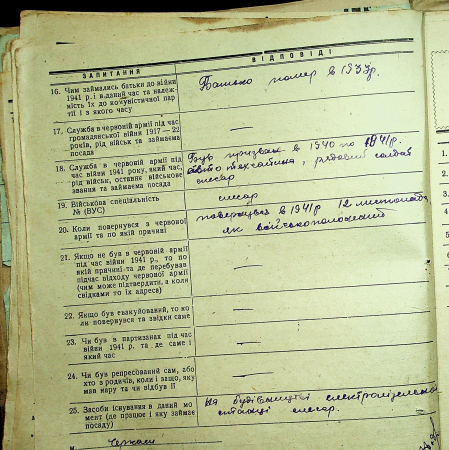 ЗАПИТАННЯ
ВІДПОВІДІ
16. Чим займались батьки до війни
1941 р. і в даний час та належ-
ність їх до комуністичної пар
тії і з якого часу
Батько помер в 1933р.
17. Служба в червоній армії під час
громадянської війни 1917—22
років, рід військ та займаєма
посада
18. Служба в червоній армії під
час війни 1941 року, який час,
рід військ, останнє військове
звання та займаєма посада
Був призван в 1940 по 1941р.
авто рядовий солдат
слесар
19. Військова спеціальність
№ (ВУС)
слесар
20. Коли повернувся з червоної
армії та по якій причині
повернувся в 1941р 12 листопада
як військополонений
21. Якщо не був в червоній армії
під час війни 1941 р., то по
якій причині та де перебував
підчас відходу червоної армії
(чим може підтвердити, а коли
свідками то їх адреса)
22. Якщо був евакуйований, то ко
ли повернувся та звідки саме
23. Чи був в партизанах під час
війни 1941 р. та де саме і
який час
24. Чи був репресований сам, або
хто з родичів, коли і защо, яку
мав кару та чи відбув її
25. Засоби існування в даний мо
мент (де працює і яку займає
посаду)
На будівництві
станції слесар.
м. Черкаси
1.
2.
3.
4.
5.